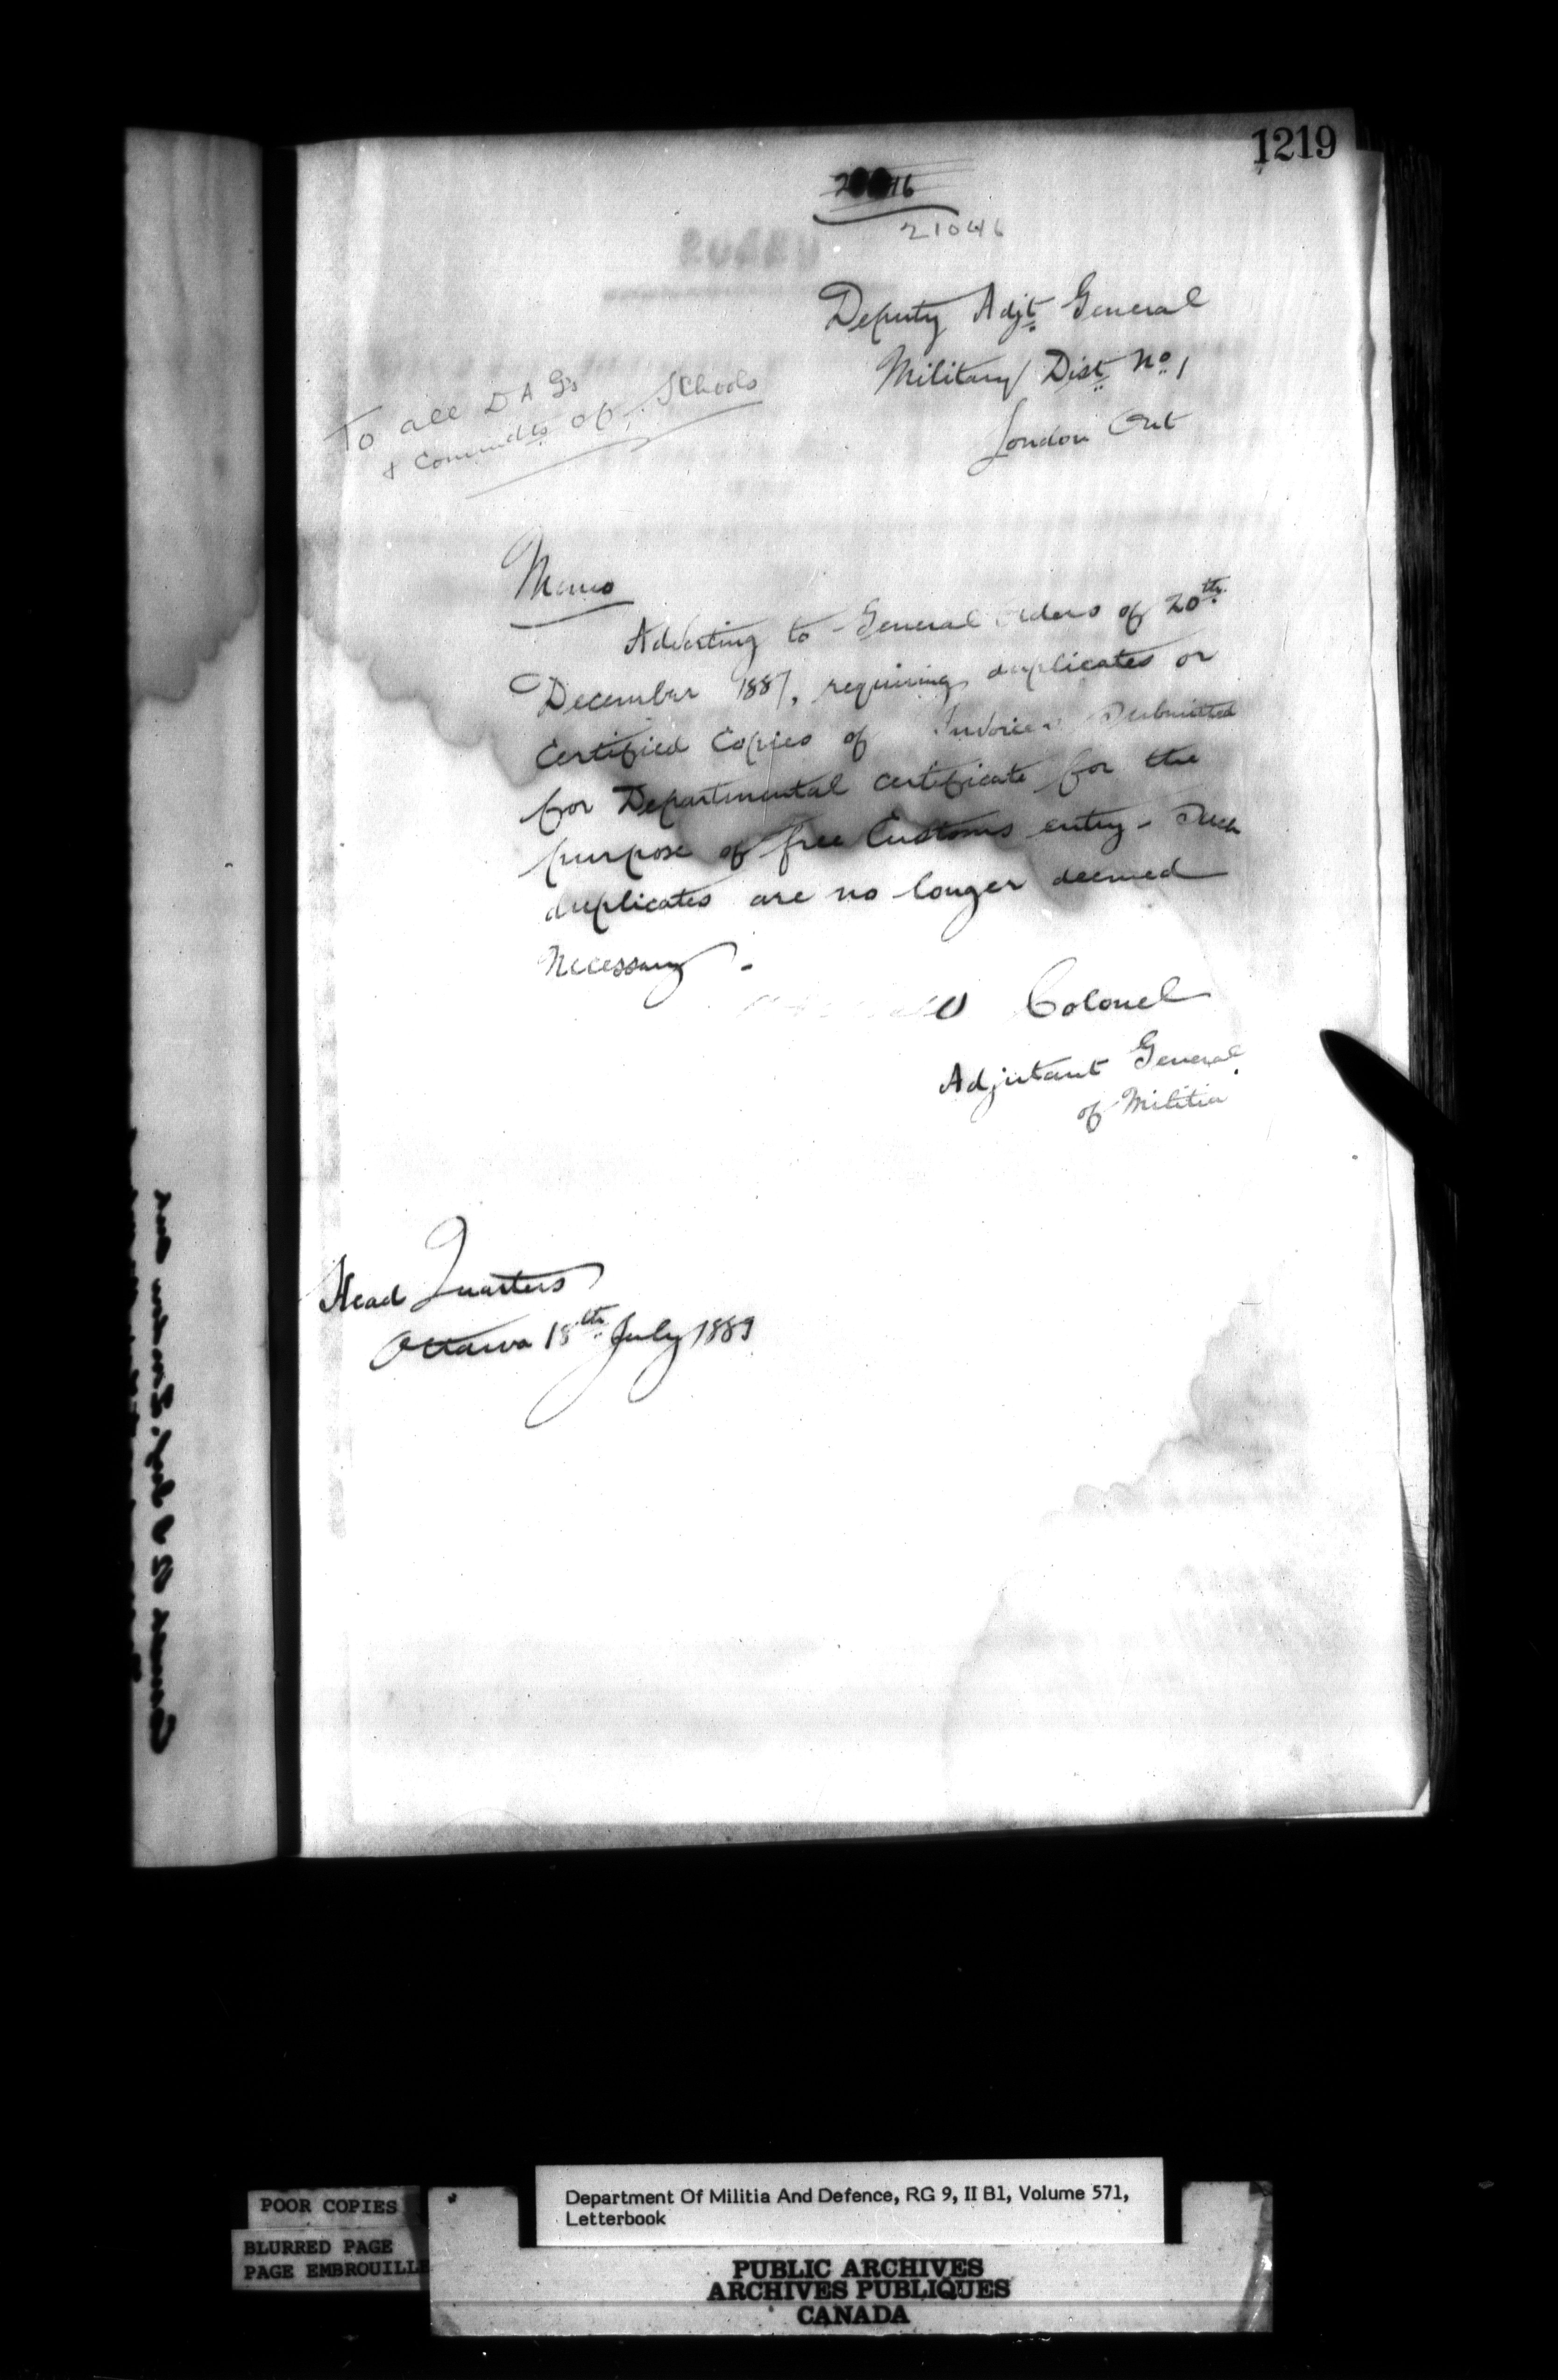 1219
21046
Deputy Adjt. General
Military Dist. No. 1
London Ont
To all D A Gs
& Commdts of Schools
Memo
Adverting to General Orders of 20th
December 1887, requiring duplicates or
Certified Copies of Invoices submitted
for Departmental certificate for the
purpose of free Customs entry - Such
duplicates are no longer deemed
necessary -
Colonel
Adjutant General
of Militia
Head Quarters
Ottawa 18th July 1889
POOR COPIES
BLURRED PAGE
PAGE EMBROUILLE
Department Of Militia And Defence, RG 9, II B1, Volume 571,
Letterbook
PUBLIC ARCHIVES
ARCHIVES PUBLIQUES
CANADA